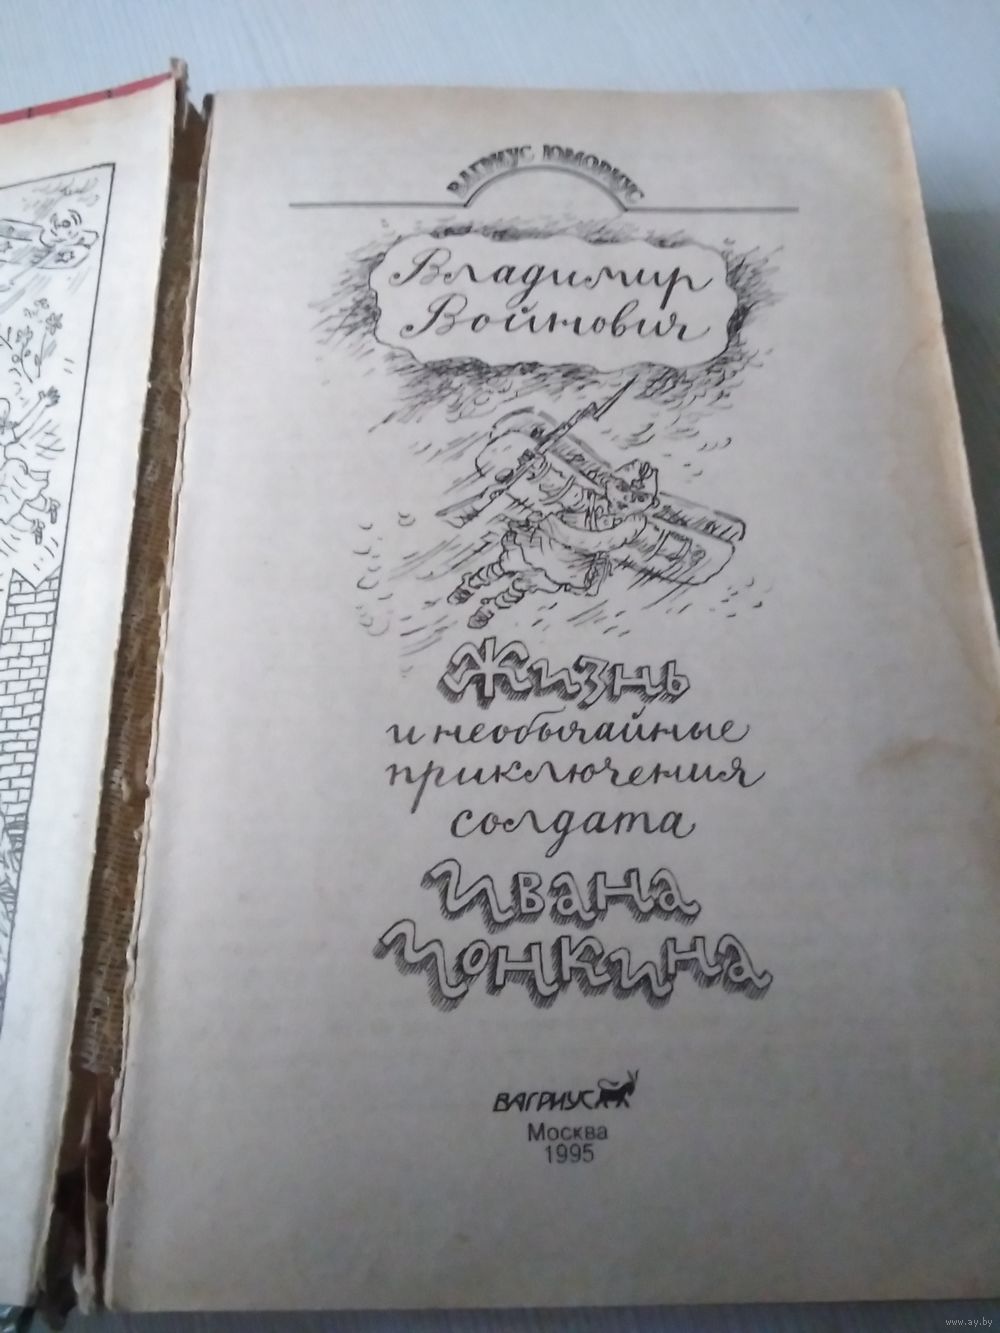 ВАГРИУС ЮМОРИУС
Владимир
Войнович
Жизнь
и необычайные
приключения
солдата
Ивана
Чонкина
ВАГРИУС
Москва
1995
www.ay.by